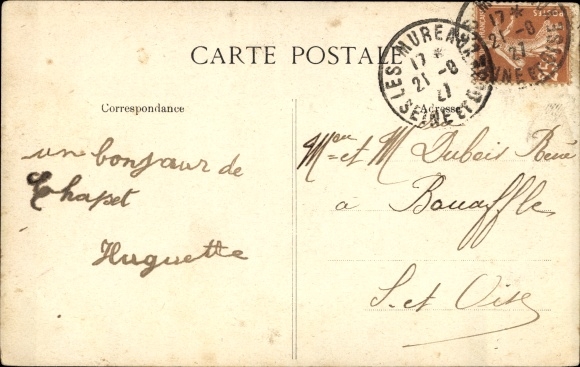 CARTE POSTALE
Correspondance
Adresse
un bonjour de
Chapet
Huguette
Mr et M Dubois René
à Bouafle
S. et Oise
LES MUREAUX
17 *
21 - 8
27
SEINE ET OISE
17 *
21 - 8
27
POSTES